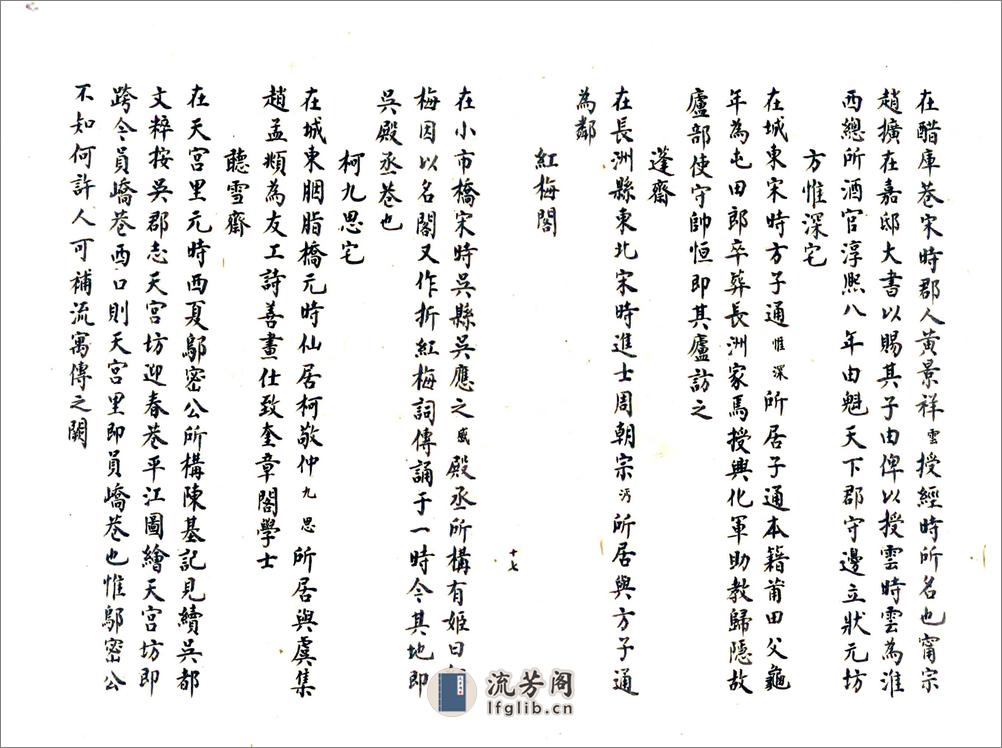 在醋庫巷宋時郡人黃景祥雲授經時所名也甯宗
趙擴在嘉邸大書以賜其子由俾以授雲時雲為淮
西總所酒官淳熙八年由魁天下郡守邊立狀元坊
方惟深宅
在城東宋時方子通惟深所居子通本籍莆田父龜
年為屯田郎卒葬長洲家焉授興化軍助教歸隱故
廬部使守帥恒即其廬訪之
蓬齋
在長洲縣東北宋時進士周朝宗沔所居與方子通
為鄰
紅梅閣
十七
在小市橋宋時吳縣吳應之感殿丞所構有姬曰
梅因以名閣又作折紅梅詞傳誦于一時今其地即
吳殿丞巷也
柯九思宅
在城東胭脂橋元時仙居柯敬仲九思所居與虞集
趙孟頫為友工詩善畫仕致奎章閣學士
聽雪齋
在天宮里元時西夏鄔密公所構陳基記見續吳都
文粹按吳郡志天宮坊迎春巷平江圖繪天宮坊即
跨今員嶠巷西口則天宮里即員嶠巷也惟鄔密公
不知何許人可補流寓傳之闕
流芳閣
lfglib.cn